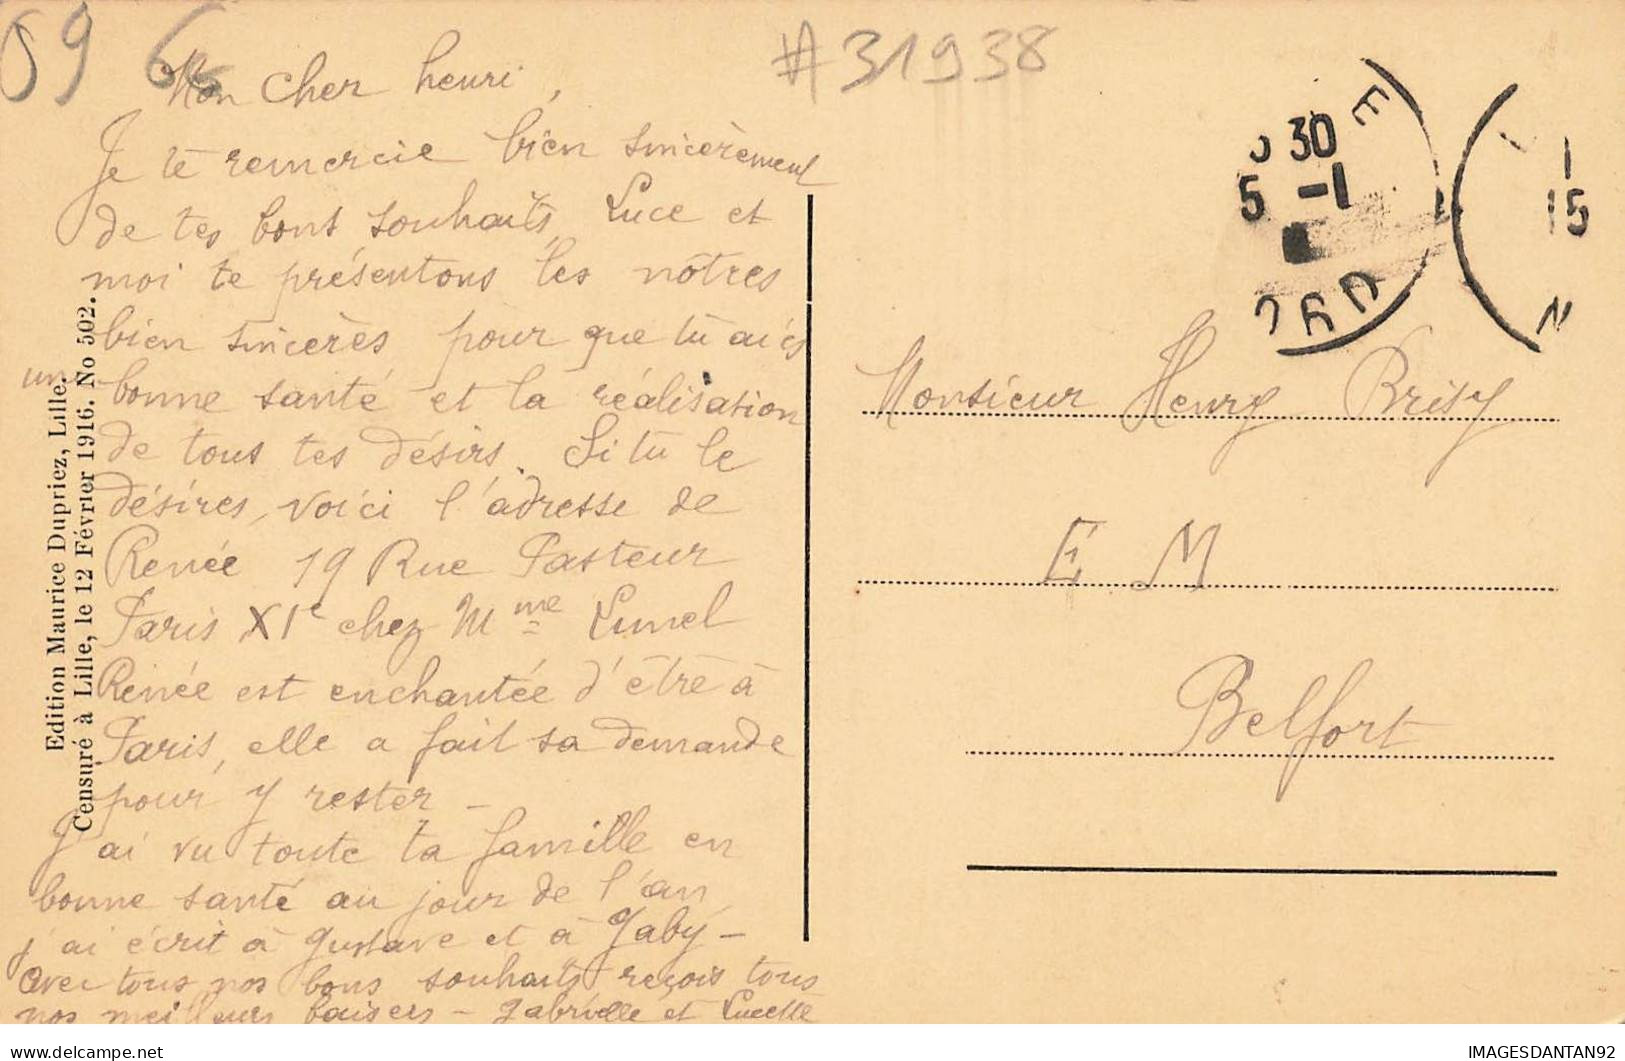 59 6
#31938
Mon cher henri,
Je te remercie bien sincèrement
de tes bons souhaits, Luce et
moi te présentons les nôtres
bien sincères pour que tu aies
une bonne santé et la réalisation
de tous tes désirs. Si tu le
désires, voici l'adresse de
Renée 19 Rue Pasteur
Paris XIe chez Mme Lunel
Renée est enchantée d'être à
Paris, elle a fait sa demande
pour y rester -
J'ai vu toute ta famille en
bonne santé au jour de l'an,
j'ai écrit à Gustave et à Gaby -
avec tous nos bons souhaits reçois tous
nos meilleurs baisers - Gabrielle et Lucette
Edition Maurice Dupriez, Lille.
Censuré à Lille, le 12 Février 1916. No 502.
E
30
5 -1
ORD
15
N
Monsieur Henry Brisy
E M
Belfort
delcampe.net
IMAGESDANTAN92